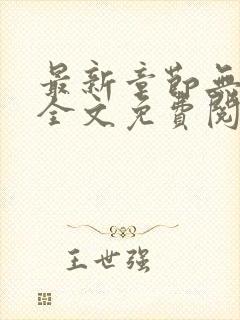 最新章节无
全文免费阅
王世强